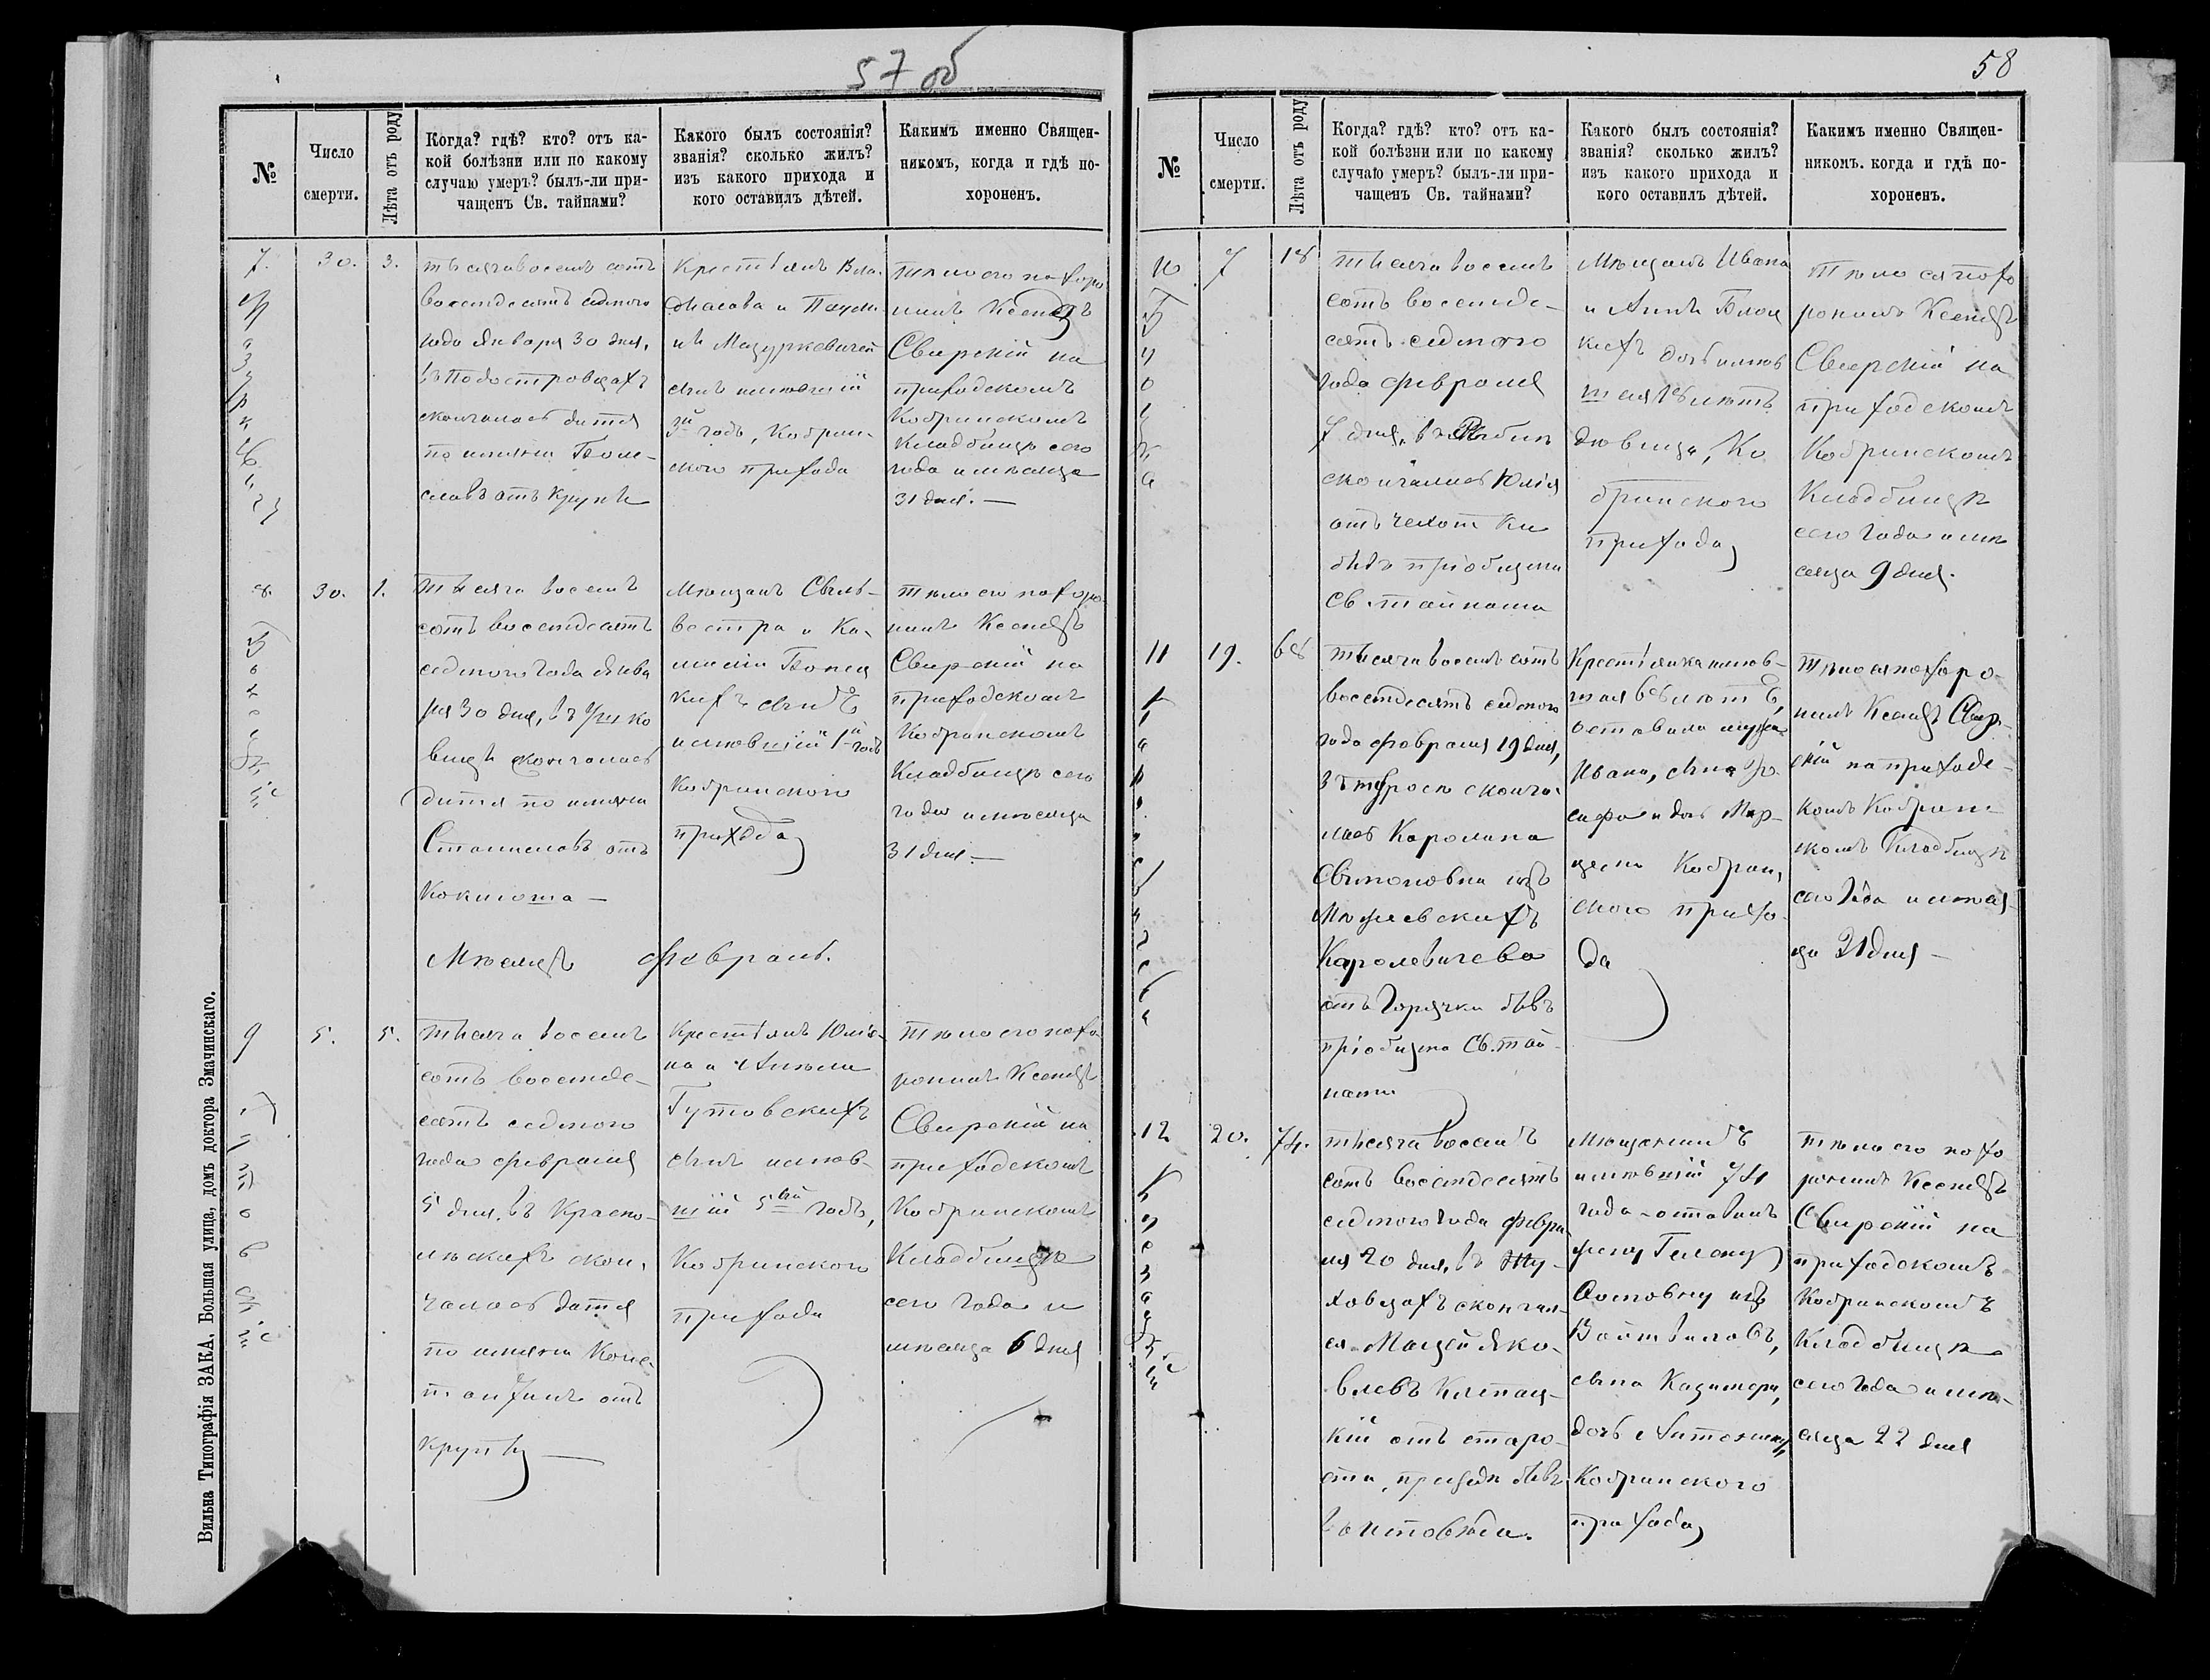 57 об
№
Число
смерти.
Лѣта отъ роду
Когда? гдѣ? кто? отъ ка-
кой болѣзни или по какому
случаю умеръ? былъ-ли при-
чащенъ Св. тайнами?
Какого былъ состоянія?
званія? сколько жилъ?
изъ какого прихода и
кого оставилъ дѣтей.
Какимъ именно Священ-
никомъ, когда и гдѣ по-
хороненъ.
7.
30.
3.
тысяча восемь сотъ
восемдесятъ седмого
года Января 30 дня,
скончалось дитя
по имяни Боле-
славъ отъ крупы
Крестьянъ Вла-
Мацкевичей
сынъ имѣвшій
3й годъ, Кобрин-
ского прихода
тѣло его похоро
нилъ Ксендзъ
Свирскій на
приходскомъ
Кобринскомъ
Кладбищѣ сего
года и мѣсяца
31 дня. —
8.
30.
1.
тысяча восемъ
сотъ восемдесятъ
седмого года Янва
ря 30 дня, въ
скончалось
дитя по имяни
Станиславъ отъ
Коклюша —
Мѣщанъ Силь-
вестра и Ка-
кихъ сынъ
имѣвшій 1й годъ
Кобринского
прихода
тѣло его похоро
нилъ Ксендзъ
Свирскій на
приходскомъ
Кобринскомъ
Кладбищѣ сего
года и мѣсяца
31 дня. —
Мѣсяцъ Февраль.
9
5.
5.
тысяча восемъ
сотъ восемде-
сятъ седмого
года февраля
5 дня, въ Красно-
скон-
чалось дитя
по имяни Конс-
тантинъ отъ
крупы —
Крестьянъ Юлія-
на и Анели
Гутовскихъ
сынъ имѣв-
шій 5ый годъ,
Кобринского
прихода
тѣло его похо
ронилъ Ксендзъ
Свирскій на
приходскомъ
Кобринскомъ
Кладбищѣ
сего года и
мѣсяца 6 дня
Вильна Типографія ЗАКА, Большая улица, домъ доктора Змачинскаго.
58
№
Число
смерти.
Лѣта отъ роду
Когда? гдѣ? кто? отъ ка-
кой болѣзни или по какому
случаю умеръ? былъ-ли при-
чащенъ Св. тайнами?
Какого былъ состоянія?
званія? сколько жилъ?
изъ какого прихода и
кого оставилъ дѣтей.
Какимъ именно Священ-
никомъ. когда и гдѣ по-
хороненъ.
10
7
18
тысяча восемъ
сотъ восемде-
сятъ седмого
года февраля
7 дня, въ
скончалась Юлія
отъ чехотки
бывъ пріобщена
Св. тайнами
Мѣщанъ Ивана
и Анны
кихъ дочь имѣв
шая 18 лѣтъ
дѣвица, Ко
бринского
прихода
тѣло ея похо
ронилъ Ксендзъ
Свирскій на
приходскомъ
Кобринскомъ
Кладбищѣ
сего года и мѣ
сяца 9 дня.
11
19.
68
тысяча восемь сотъ
восемдесятъ седмого
года февраля 19 дня,
сконча-
лась Каролина
изъ
Королевичева
отъ Горячки бывъ
пріобщена Св. тай-
нами
Крестьянка имѣв-
шая 68 лѣтъ,
оставила мужа
Ивана, сына Іо-
сифа и дочь Мар-
Кобрин-
ского прихо-
да
тѣло ея похоро-
нилъ Ксендзъ Свир-
скій на приход-
комъ Кобрин-
скомъ Кладбищѣ
сего года и мѣся-
ца 21 дня —
12
20.
74.
тысяча восемъ
сотъ восемдесятъ
седмого года февра
ля 20 дня, въ Жу-
ховцахъ скончал-
ся Мацей Яко-
влевъ Клепац-
кій отъ старо-
сти, прежде бывъ
Мѣщанинъ
имѣвшій 74
года оставилъ
жену Гелену
Осиповну изъ
Войтиловъ,
сына Казимера,
дочь Антонину,
Кобринского
прихода
тѣло его похо
ронилъ Ксендзъ
Свирскій на
приходскомъ
Кобринскомъ
Кладбищѣ
сего года и мѣ-
сяца 22 дня